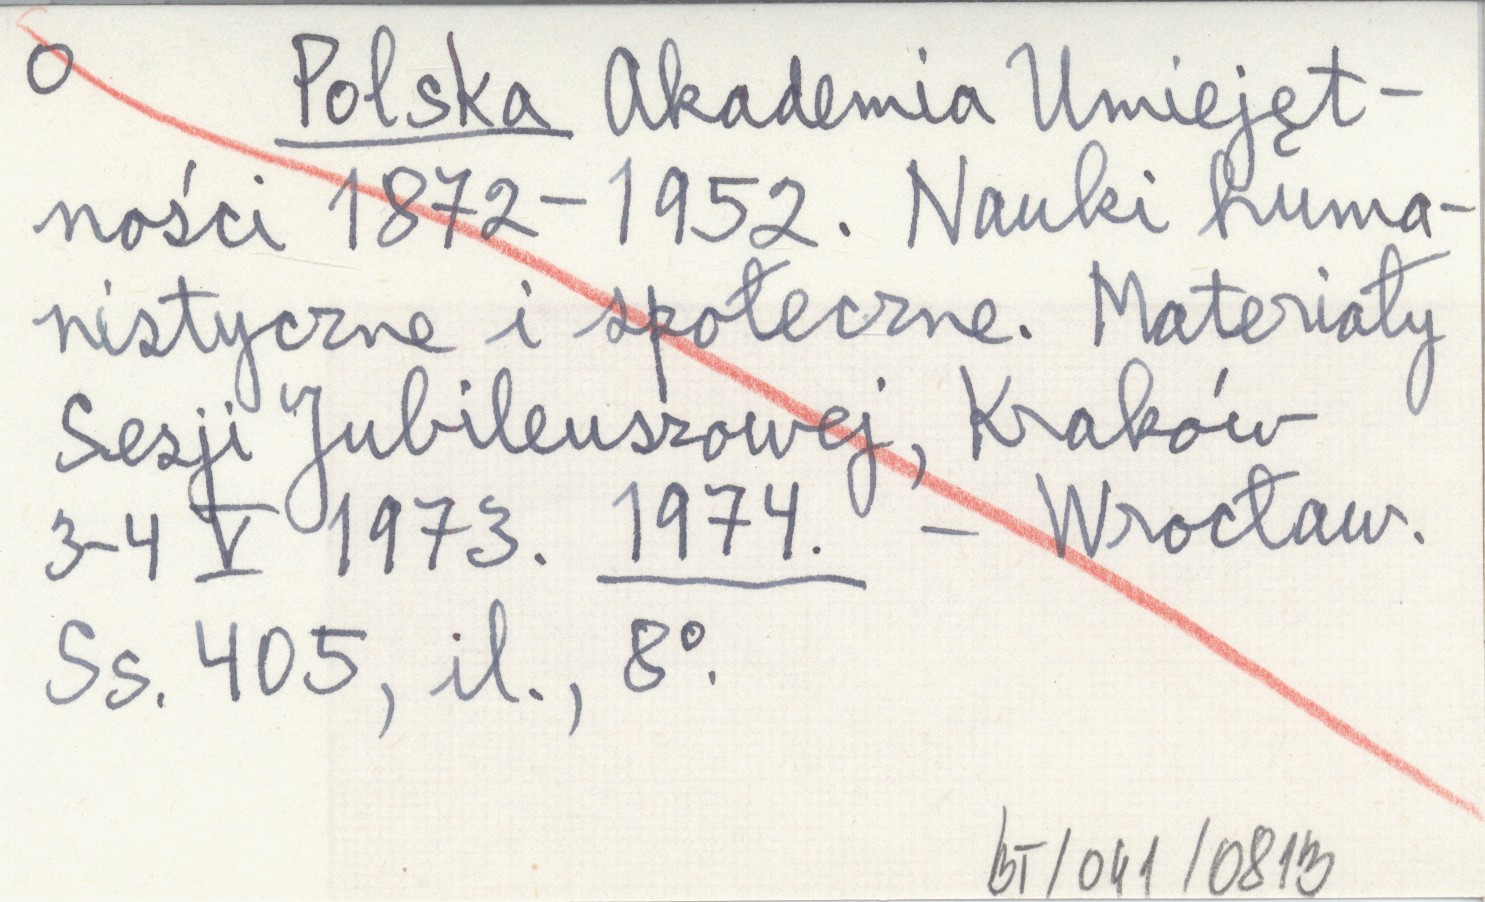 O Polska Akademia Umiejęt-
ności 1872-1952. Nauki huma-
nistyczne i społeczne. Materiały
Sesji Jubileuszowej, Kraków
3-4 V 1973. 1974. - Wrocław.
Ss. 405, il., 8°.
/041/0813